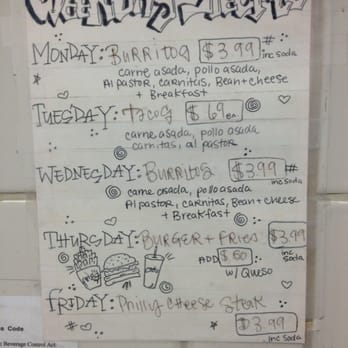 MONDAY: Burritos $3.99 #
inc soda
carne asada, pollo asada,
Al pastor, carnitas, Bean + cheese
+ Breakfast
TUESDAY: Tacos $.69 ea
carne asada, pollo asada
carnitas, al pastor
WEDNESDAY: Burritos $3.99 #
inc soda
carne asada, pollo asada
Al pastor, carnitas, Bean + cheese
+ Breakfast
THURSDAY: BURGER + FRIES $3.99
inc soda
ADD $.60
w/ Queso
FRIDAY: Philly Cheese Steak
# $3.99
inc soda
Code
Beverage Control Act